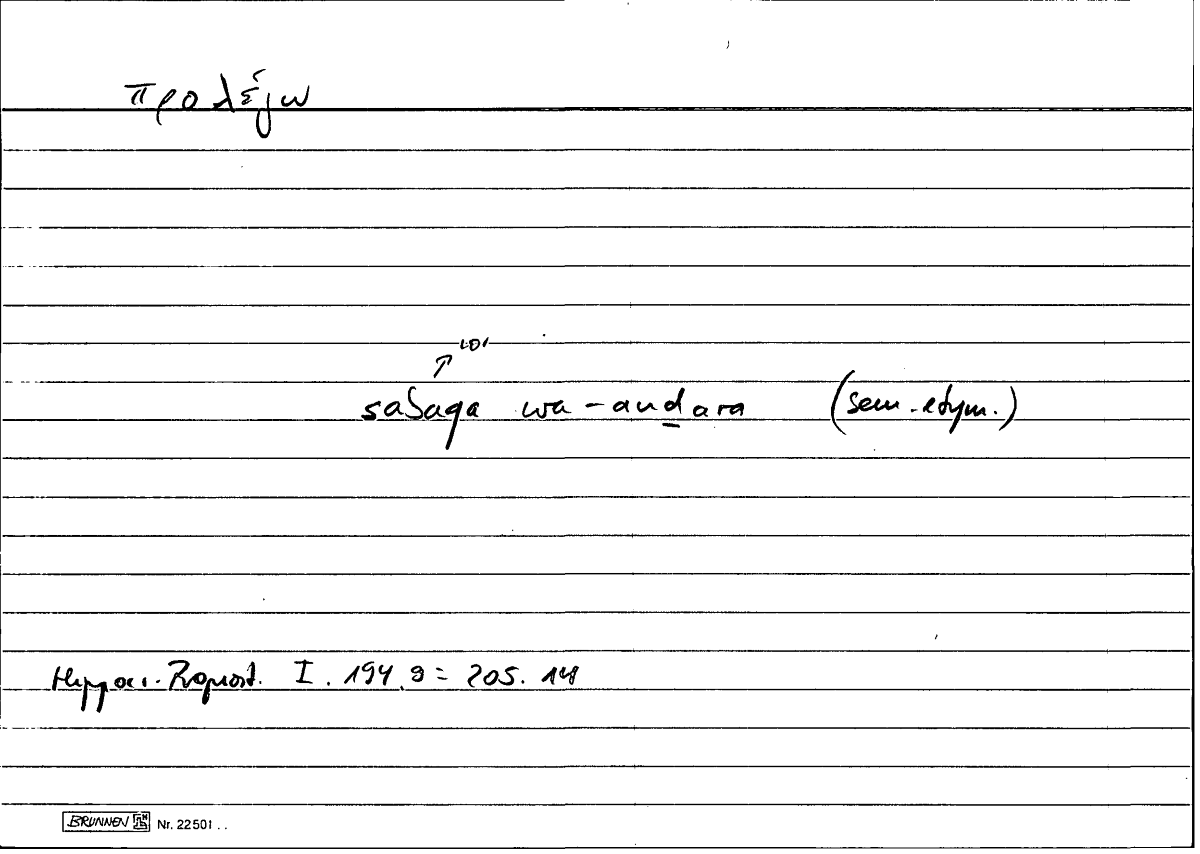 προλέγω
↗ ιοι
sabaqa wa-anḏara (sem. etym.)
Hippocr. Prognost. I. 194.9 = 205.14
BRUNNEN Nr. 22501 ..